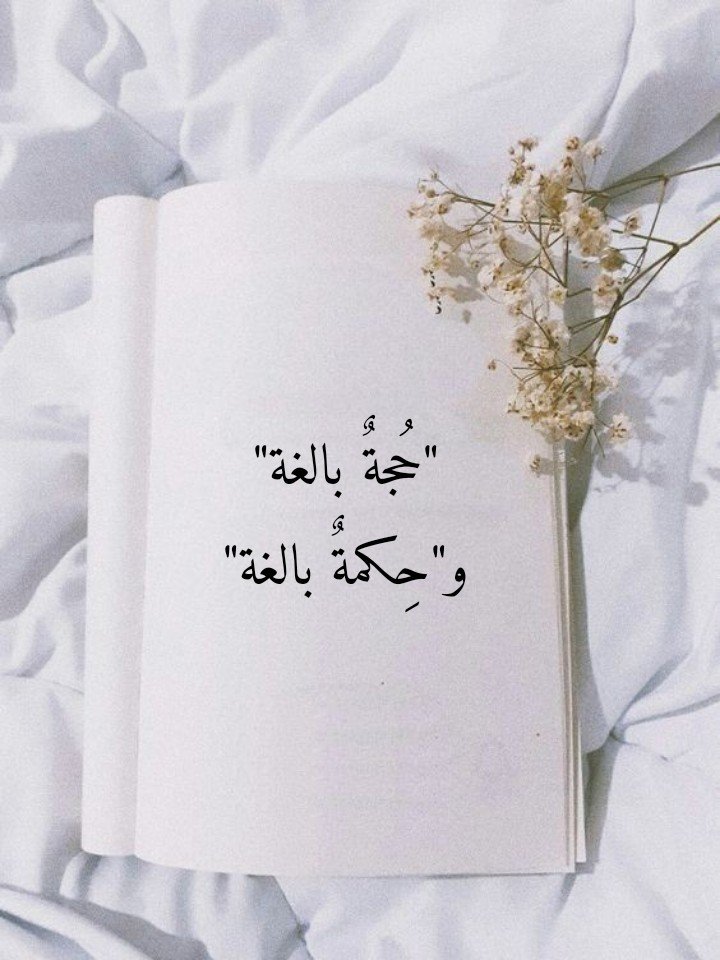 "حُجةٌ بالغة"
و"حِكمةٌ بالغة"